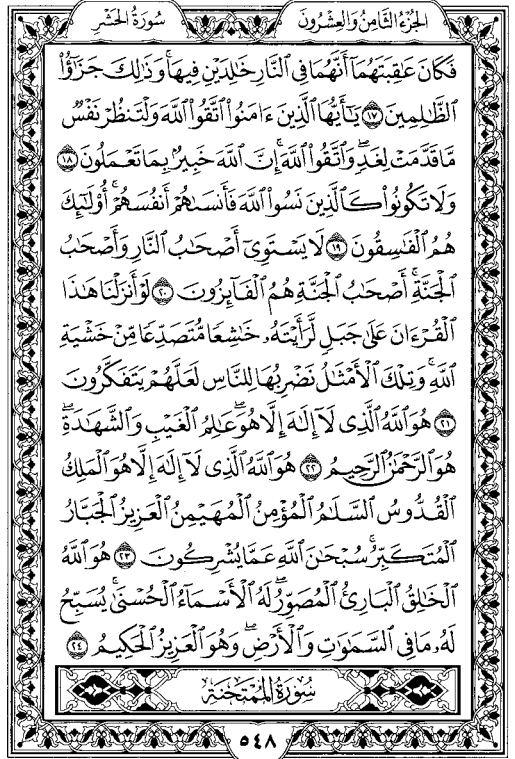 الجزء الثامن والعشرون
سورة الحشر
فَكَانَ عَٰقِبَتَهُمَآ أَنَّهُمَا فِي ٱلنَّارِ خَٰلِدَيْنِ فِيهَا ۚ وَذَٰلِكَ جَزَٰٓؤُا۟
ٱلظَّٰلِمِينَ ١٧ يَٰٓأَيُّهَا ٱلَّذِينَ ءَامَنُوا۟ ٱتَّقُوا۟ ٱللَّهَ وَلْتَنظُرْ نَفْسٌ
مَّا قَدَّمَتْ لِغَدٍ ۖ وَٱتَّقُوا۟ ٱللَّهَ ۚ إِنَّ ٱللَّهَ خَبِيرٌۢ بِمَا تَعْمَلُونَ ١٨
وَلَا تَكُونُوا۟ كَٱلَّذِينَ نَسُوا۟ ٱللَّهَ فَأَنسَىٰهُمْ أَنفُسَهُمْ ۚ أُو۟لَٰٓئِكَ
هُمُ ٱلْفَٰسِقُونَ ١٩ لَا يَسْتَوِىٓ أَصْحَٰبُ ٱلنَّارِ وَأَصْحَٰبُ
ٱلْجَنَّةِ ۚ أَصْحَٰبُ ٱلْجَنَّةِ هُمُ ٱلْفَآئِزُونَ ٢٠ لَوْ أَنزَلْنَا هَٰذَا
ٱلْقُرْءَانَ عَلَىٰ جَبَلٍ لَّرَأَيْتَهُۥ خَٰشِعًا مُّتَصَدِّعًا مِّنْ خَشْيَةِ
ٱللَّهِ ۚ وَتِلْكَ ٱلْأَمْثَٰلُ نَضْرِبُهَا لِلنَّاسِ لَعَلَّهُمْ يَتَفَكَّرُونَ
٢١ هُوَ ٱللَّهُ ٱلَّذِى لَآ إِلَٰهَ إِلَّا هُوَ ۖ عَٰلِمُ ٱلْغَيْبِ وَٱلشَّهَٰدَةِ ۖ
هُوَ ٱلرَّحْمَٰنُ ٱلرَّحِيمُ ٢٢ هُوَ ٱللَّهُ ٱلَّذِى لَآ إِلَٰهَ إِلَّا هُوَ ٱلْمَلِكُ
ٱلْقُدُّوسُ ٱلسَّلَٰمُ ٱلْمُؤْمِنُ ٱلْمُهَيْمِنُ ٱلْعَزِيزُ ٱلْجَبَّارُ
ٱلْمُتَكَبِّرُ ۚ سُبْحَٰنَ ٱللَّهِ عَمَّا يُشْرِكُونَ ٢٣ هُوَ ٱللَّهُ
ٱلْخَٰلِقُ ٱلْبَارِئُ ٱلْمُصَوِّرُ ۖ لَهُ ٱلْأَسْمَآءُ ٱلْحُسْنَىٰ ۚ يُسَبِّحُ
لَهُۥ مَا فِى ٱلسَّمَٰوَٰتِ وَٱلْأَرْضِ ۖ وَهُوَ ٱلْعَزِيزُ ٱلْحَكِيمُ ٢٤
سُورَةُ المُمْتَحنَة
٥٤٨